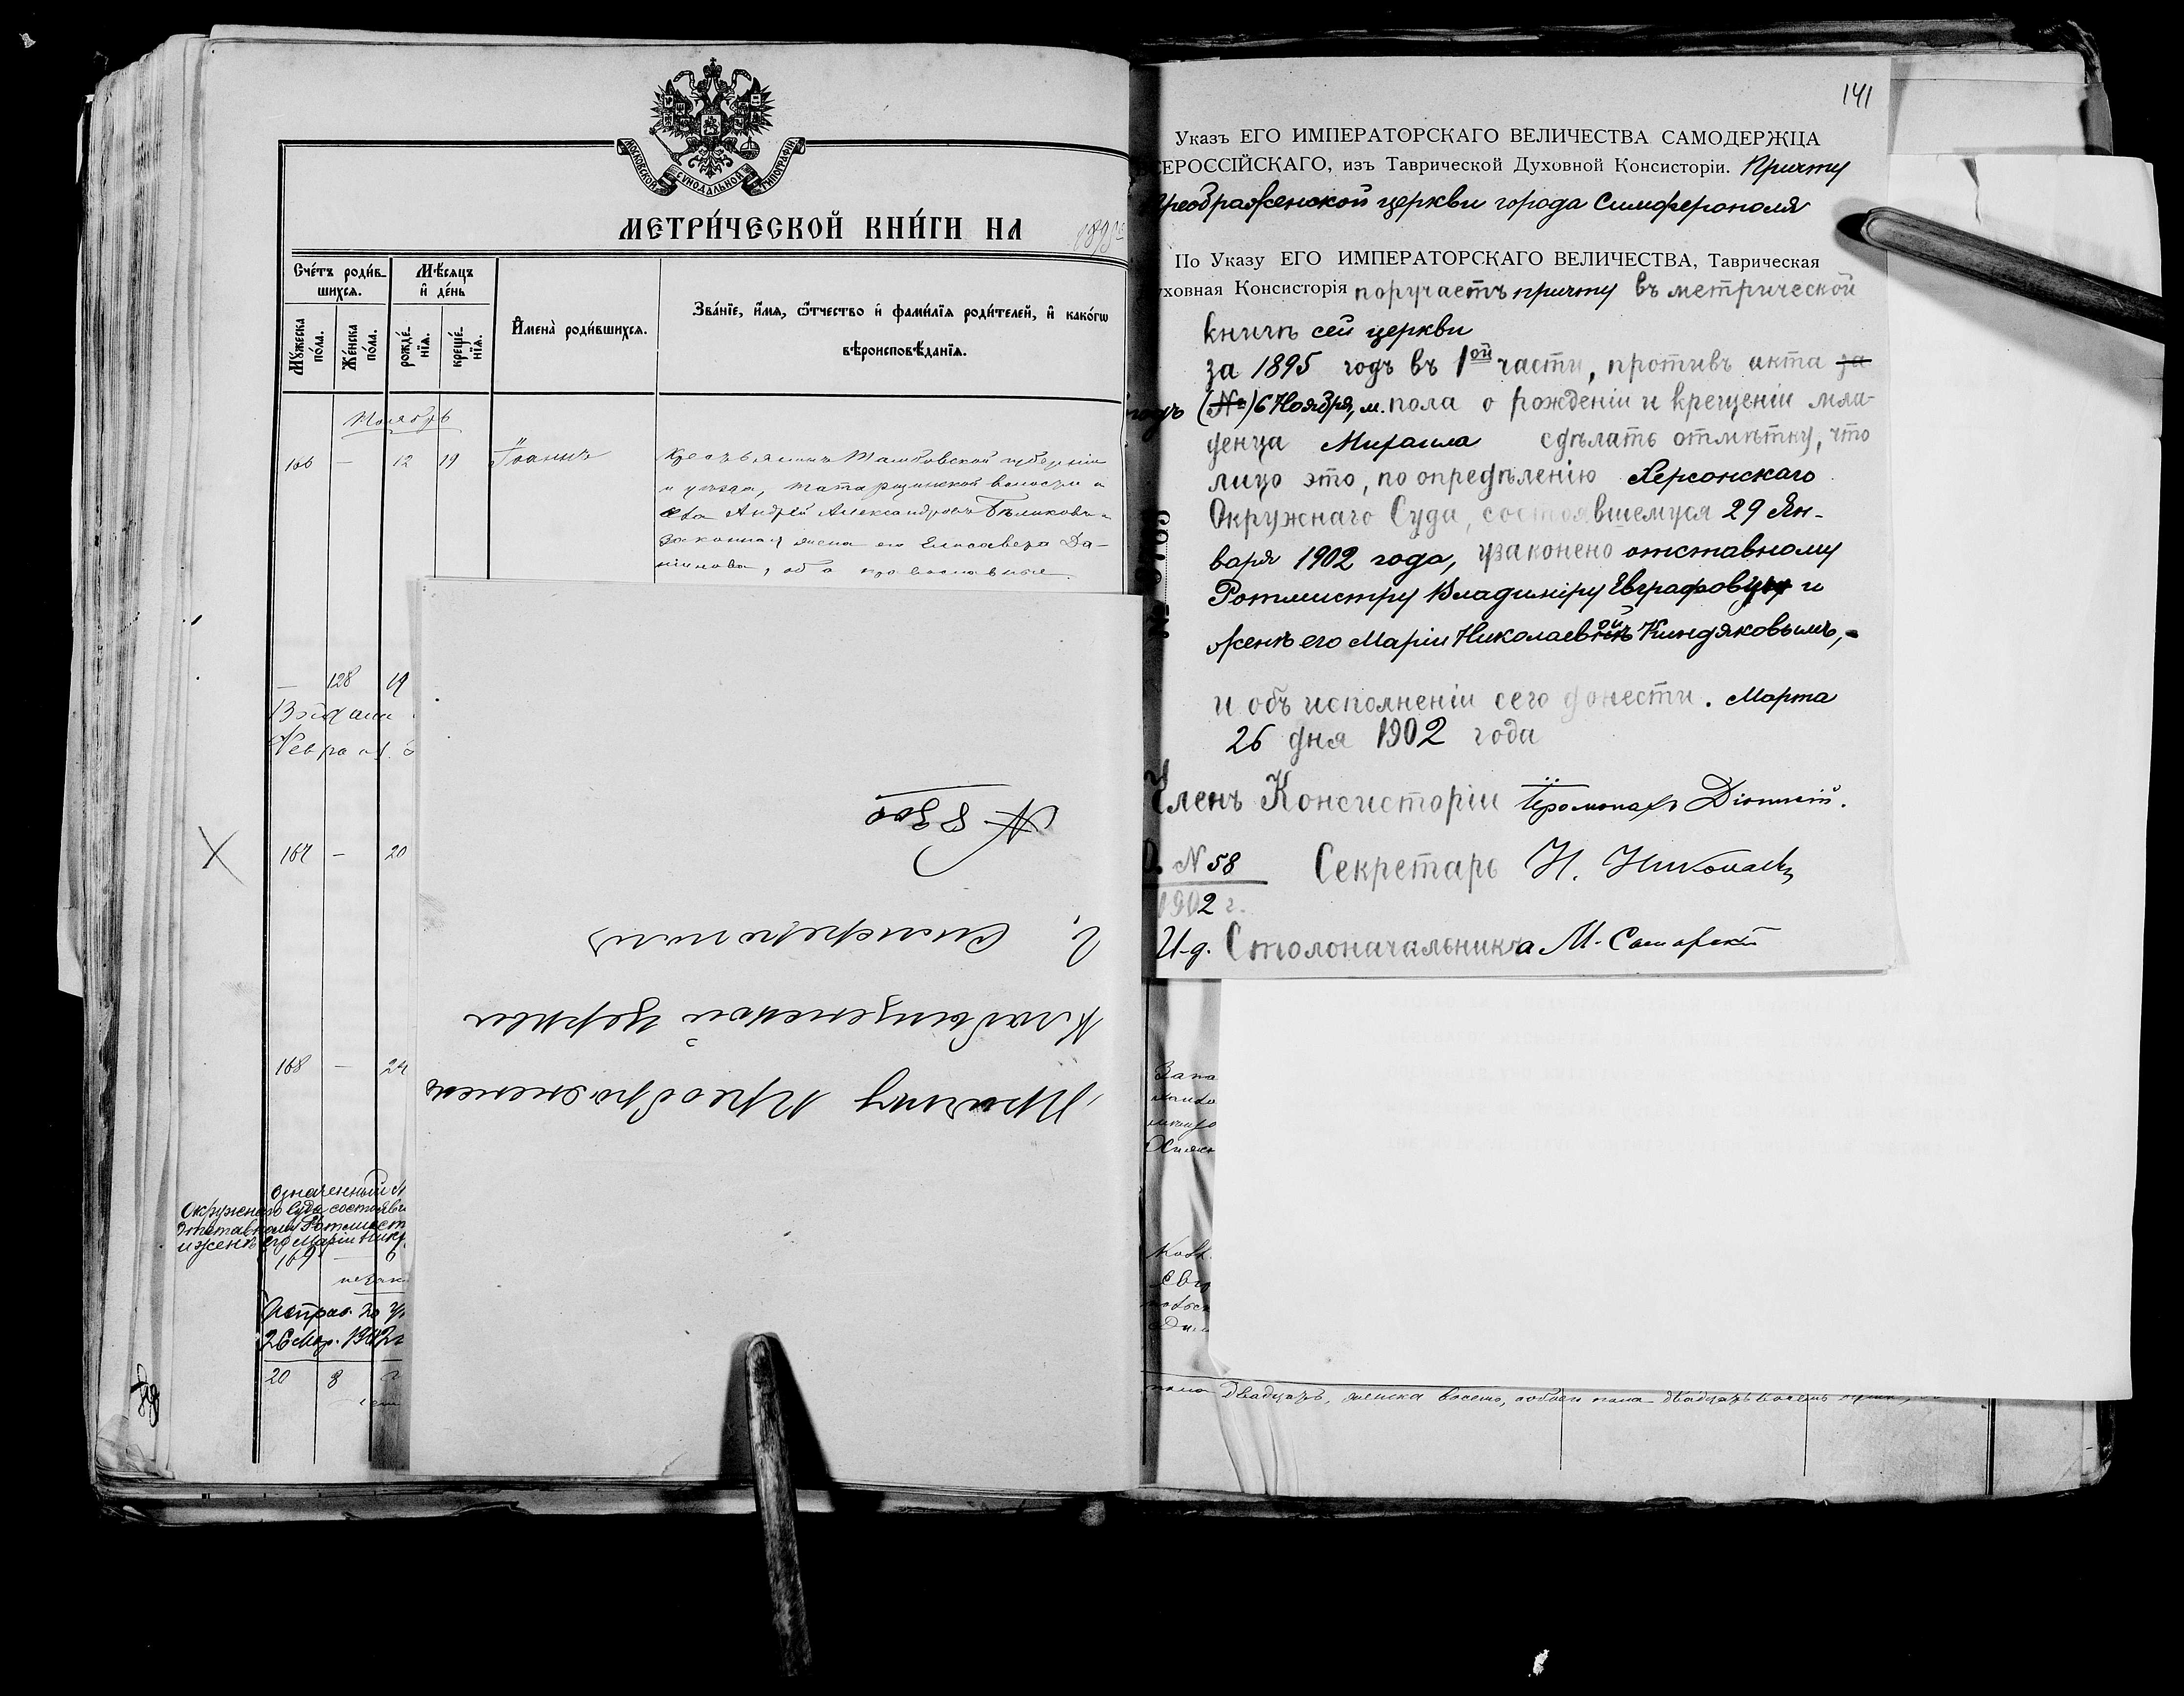 МОСКОВСКОЙ СѴНОДАЛЬНОЙ ТИПОГРАФІИ
МЕТРИ́ЧЕСКОЙ КНИ́ГИ НА 1895
Сче́тъ роди́в-
шихся.
Мѣ́сяцъ
и҆ де́нь
Мꙋ́жеска
по́ла.
Же́нска
по́ла.
рожде́-
нїѧ.
креще́-
нїѧ.
И҆мена̀ роди́вшихсѧ.
Зва́нїе, и҆́мѧ, ѻ҆́тчество и҆ фами́лїѧ роди́телей, и҆ како́гѡ
вѣроисповѣ́данїѧ.
Ноябрь
166 — 12 19 Іоаннъ
Крестьянинъ Тамбовской губерніи
и уѣзда, Татарщинской волости и
с-ва Андрей Александровъ Бѣликовъ и
законная жена его Елисавета Да-
ніилова, оба православные.
— 128 19
167 — 20
168 — 24
Означенный М
Окружнаго Суда, состоявш
отставному Ротмист
и женѣ его Маріи Ник
169 — 6
незак
Исправ. по ук
26 Мар. 1902 г
20 8
№ 8300
Причту Преображенско
Кладбищенской церкви
г. Симферополь
141
Указъ ЕГО ИМПЕРАТОРСКАГО ВЕЛИЧЕСТВА САМОДЕРЖЦА
ВСЕРОССІЙСКАГО, изъ Таврической Духовной Консисторіи. Причту
Преображенской церкви города Симферополя
По Указу ЕГО ИМПЕРАТОРСКАГО ВЕЛИЧЕСТВА, Таврическая
уховная Консисторія поручаетъ причту въ метрической
книгѣ сей церкви
за 1895 годъ въ 1ой части, противъ акта за
(№) 6 Ноября, м. пола о рожденіи и крещеніи мла-
денца Михаила сдѣлать отмѣтку, что
лицо это, по опредѣленію Херсонскаго
Окружнаго Суда, состоявшемуся 29 Ян-
варя 1902 года, узаконено отставному
Ротмистру Владиміру Евграфову и
женѣ его Маріи Николаевой Киндяковымъ,
и объ исполненіи сего донести. Марта
26 дня 1902 года
Членъ Консисторіи Іеромонахъ Діонисій.
О. № 58
1902 г.
Секретарь Н. Николаевъ
И. д. Столоначальника М.
Запа
пола двадцать, женска восемь, обоего пола двадцать восемь